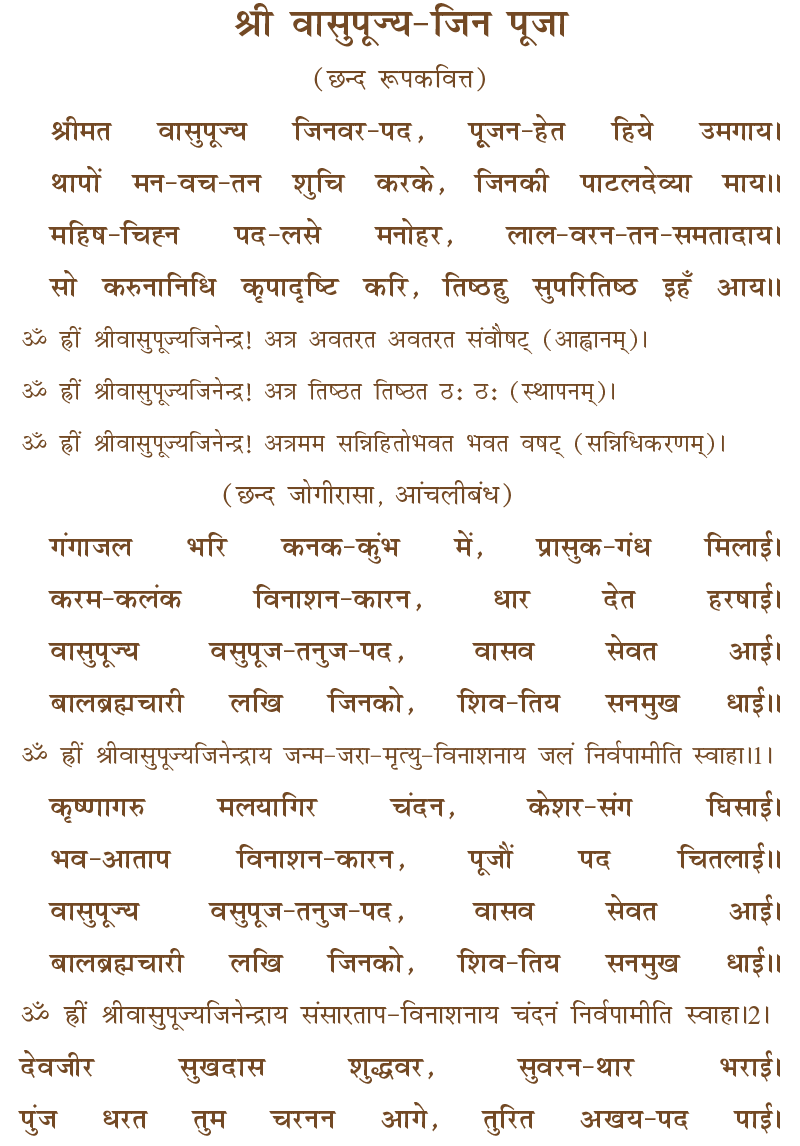 श्री वासुपूज्य-जिन पूजा
(छन्द रूपकवित्त)
श्रीमत वासुपूज्य जिनवर-पद, पूजन-हेत हिये उमगाय।
थापों मन-वच-तन शुचि करके, जिनकी पाटलदेव्या माय॥
महिष-चिह्न पद-लसे मनोहर, लाल-वरन-तन-समतादाय।
सो करुनानिधि कृपादृष्टि करि, तिष्ठहु सुपरितिष्ठ इहँ आय॥
ॐ ह्रीं श्रीवासुपूज्यजिनेन्द्र! अत्र अवतरत अवतरत संवौषट् (आह्वानम्)।
ॐ ह्रीं श्रीवासुपूज्यजिनेन्द्र! अत्र तिष्ठत तिष्ठत ठ: ठ: (स्थापनम्)।
ॐ ह्रीं श्रीवासुपूज्यजिनेन्द्र! अत्रमम सन्निहितोभवत भवत वषट् (सन्निधिकरणम्)।
(छन्द जोगीरासा, आंचलीबंध)
गंगाजल भरि कनक-कुंभ में, प्रासुक-गंध मिलाई।
करम-कलंक विनाशन-कारन, धार देत हरषाई।
वासुपूज्य वसुपूज-तनुज-पद, वासव सेवत आई।
बालब्रह्मचारी लखि जिनको, शिव-तिय सनमुख धाई॥
ॐ ह्रीं श्रीवासुपूज्यजिनेन्द्राय जन्म-जरा-मृत्यु-विनाशनाय जलं निर्वपामीति स्वाहा।1।
कृष्णागरु मलयागिर चंदन, केशर-संग घिसाई।
भव-आताप विनाशन-कारन, पूजौं पद चितलाई॥
वासुपूज्य वसुपूज-तनुज-पद, वासव सेवत आई।
बालब्रह्मचारी लखि जिनको, शिव-तिय सनमुख धाई॥
ॐ ह्रीं श्रीवासुपूज्यजिनेन्द्राय संसारताप-विनाशनाय चंदनं निर्वपामीति स्वाहा।2।
देवजीर सुखदास शुद्धवर, सुवरन-थार भराई।
पुंज धरत तुम चरनन आगे, तुरित अखय-पद पाई।